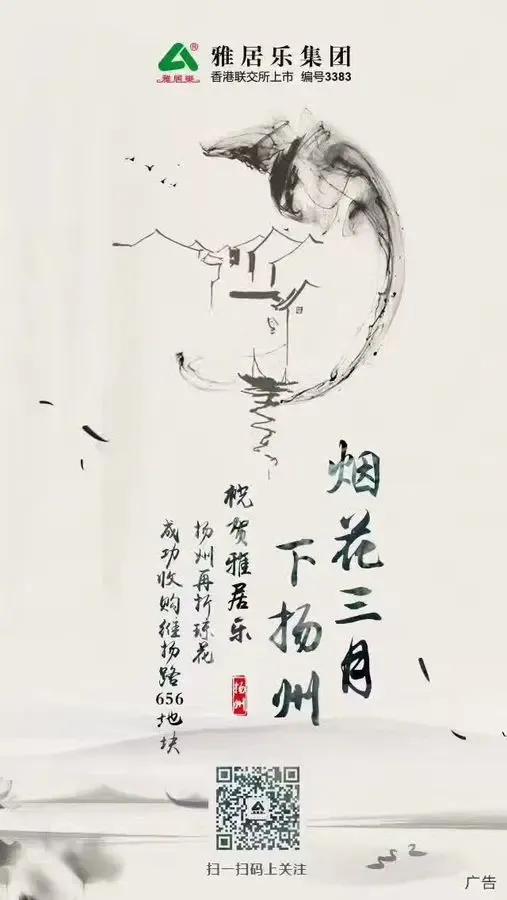 雅居乐集团
雅居樂®
香港联交所上市 编号3383
烟花三月
下扬州
祝贺雅居乐
扬州再折琼花
成功收购维扬路656地块
扬州
扫一扫码上关注
广告